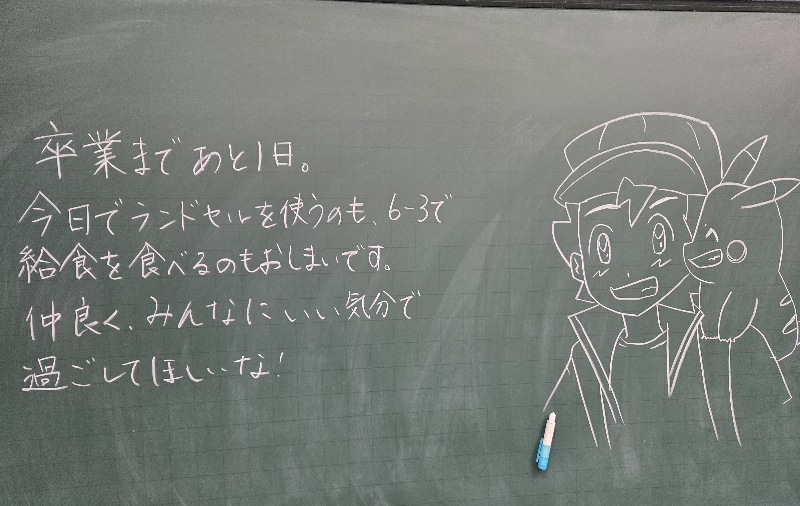 卒業まであと1日。
今日でランドセルを使うのも、6-3で
給食を食べるのもおしまいです。
仲良く、みんなにいい気分で
過ごしてほしいな!